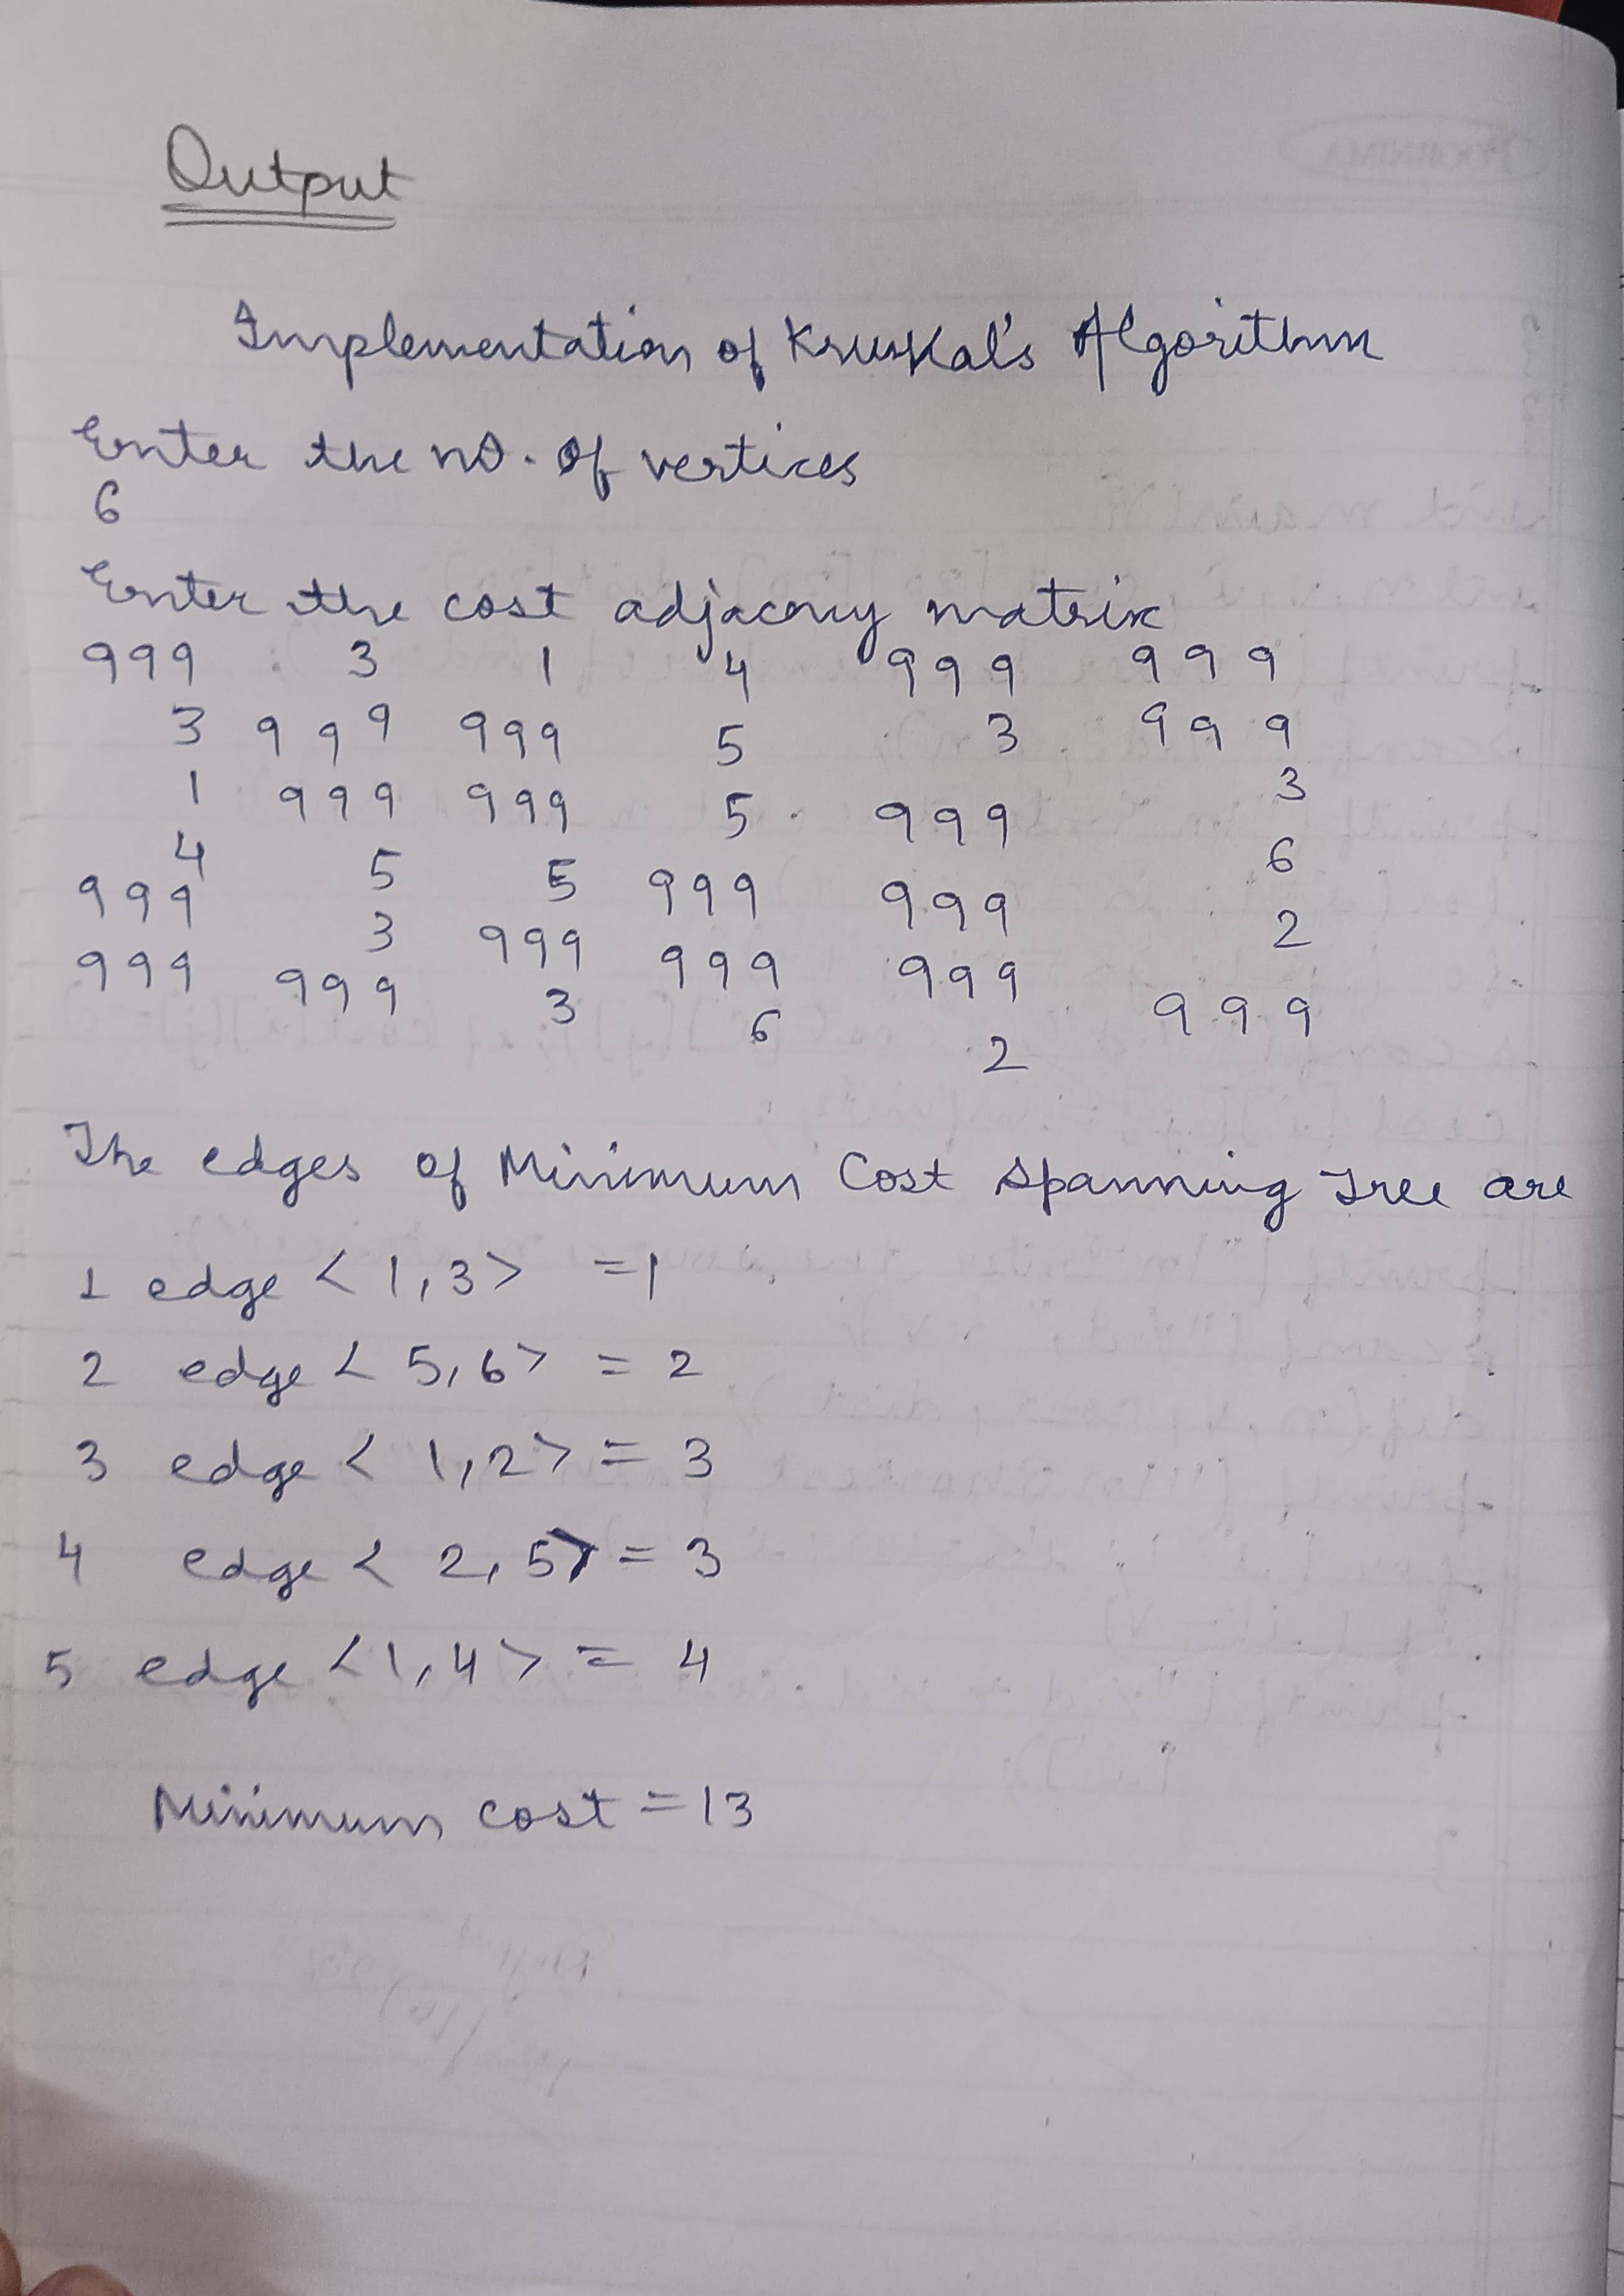 Output
Implementation of Kruskal's Algorithm
Enter the no. of vertices
6
Enter the cost adjaceny matrix
999 3 1 4 999 999
3 999 999 5 3 999
1 999 999 5 999 3
4 5 5 999 999 6
999 3 999 999 999 2
999 999 3 6 2 999
The edges of Minimum Cost Spanning Tree are
1 edge < 1,3> =1
2 edge < 5,6> = 2
3 edge < 1,2> = 3
4 edge < 2,5> = 3
5 edge <1,4> = 4
Minimum cost = 13